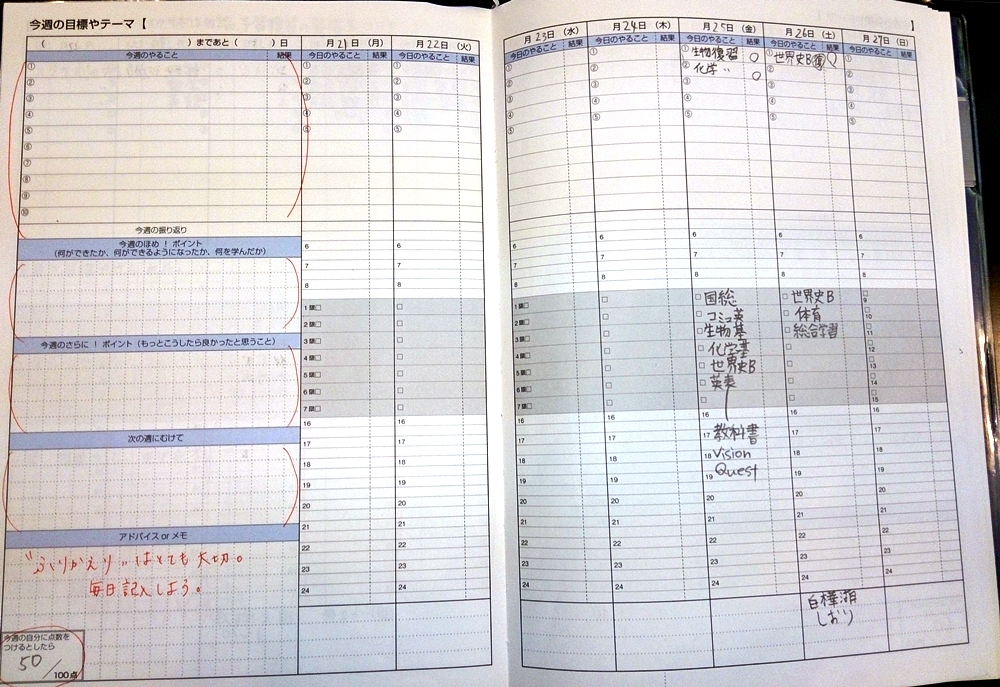 今週の目標やテーマ【
（　　　）まであと（　　　）日
今週のやること 結果
①
②
③
④
⑤
⑥
⑦
⑧
⑨
⑩
今週の振り返り
今週のほめ！ポイント
（何ができたか、何ができるようになったか、何を学んだか）
今週のさらに！ポイント（もっとこうしたら良かったと思うこと）
次の週にむけて
アドバイス or メモ
"ふりかえり"はとても大切。
毎日記入しよう。
今週の自分に点数を
つけるとしたら
50／100点
月21日（月）
今日のやること 結果
①
②
③
④
⑤
6
7
8
1限□
2限□
3限□
4限□
5限□
6限□
7限□
16
17
18
19
20
21
22
23
24
月22日（火）
今日のやること 結果
①
②
③
④
⑤
6
7
8
□
□
□
□
□
□
□
16
17
18
19
20
21
22
23
24
月23日（水）
今日のやること 結果
①
②
③
④
⑤
6
7
8
1限□
2限□
3限□
4限□
5限□
6限□
7限□
16
17
18
19
20
21
22
23
24
月24日（木）
今日のやること 結果
①
②
③
④
⑤
6
7
8
□
□
□
□
□
□
□
16
17
18
19
20
21
22
23
24
月25日（金）
今日のやること 結果
①生物復習 ○
②化学〃 ○
③
④
⑤
6
7
8
□国総
□コミュ英
□生物基
□化学基
□世界史B
□英表
□
16
17 教科書
18 Vision
19 Quest
20
21
22
23
24
月26日（土）
今日のやること 結果
①世界史B復 ○
②
③
④
⑤
6
7
8
□世界史B
□体育
□総合学習
□
□
□
□
16
17
18
19
20
21
22
23
24
白樺湖
しおり
】
月27日（日）
今日のやること 結果
①
②
③
④
⑤
6
7
8
□
9
□
10
□
11
□
12
□
13
□
14
□
15
16
17
18
19
20
21
22
23
24